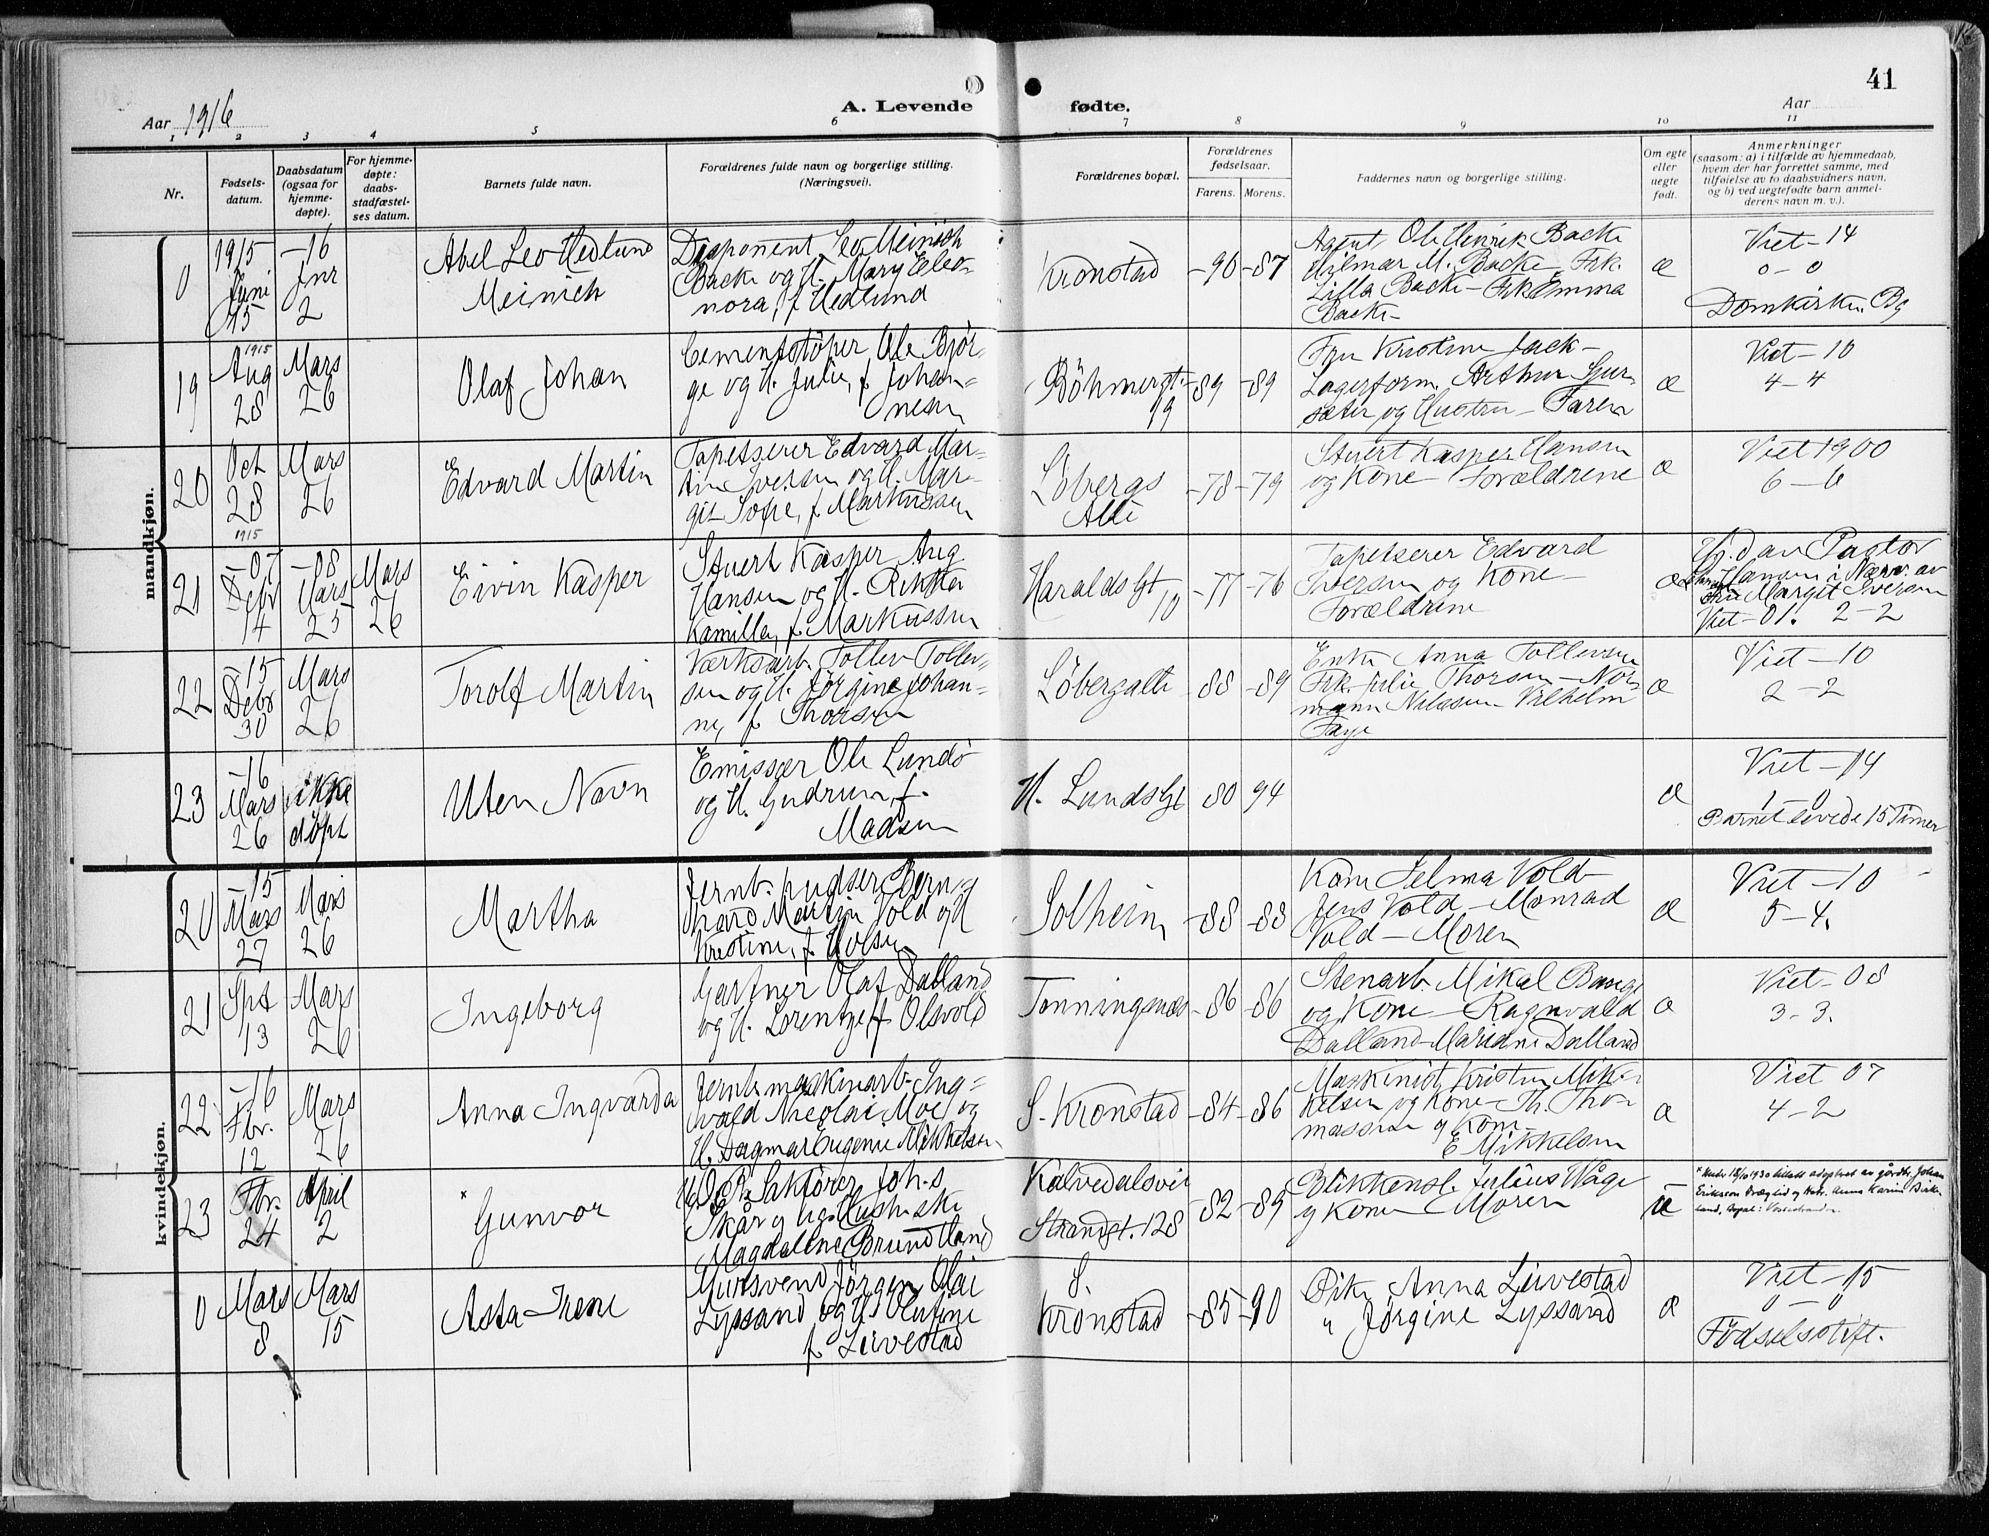 41
Aar 1916
A. Levende fødte.
Aar
1 2 3 4 5 6 7 8 9 10 11
Nr.
Fødsels-
datum.
Daabsdatum
(ogsaa for
hjemme-
døpte).
For hjemme-
døpte:
daabs-
stadfæstel-
ses datum.
Barnets fulde navn.
Forældrenes fulde navn og borgerlige stilling.
(Næringsvei).
Forældrenes bopæl.
Forældrenes
fødselsaar.
Farens. Morens.
Faddernes navn og borgerlige stilling.
Om egte
eller
uegte
født.
Anmerkninger
(saasom: a) i tilfælde av hjemmedaab,
hvem der har forrettet samme, med
tilføielse av to daabsvidners navn,
og b) ved uegtefødte barn anmel-
derens navn m. v.).
mandkjøn.
0
1915
Juni
15
-16
Jnr
2
Abel Leo Hedlund
Meinich
Disponent Leo Meinich
Backe og H. Mary Eleo-
nora, f. Hedlund
Kronstad
-90 -87
Agent Ole Henrik Backe
Hilmar M. Backe - Frk.
Lilla Backe - Frk Emma
Backe
æ
Viet - 14
0 - 0
Domkirken Bg
19
1915
Aug
28
Mars
26
Olaf Johan
Cementstøper Ole Bjør-
ge og H. Julie, f. Johan-
nesen
Bøhmergt.
19
-89 -89
Fru Kristine Jack -
Lagerform. Arthur
og Hustru - Faren
æ
Viet - 10
4 - 4
20
Oct
28
1915
Mars
26
Edvard Martin
Tapetserer Edvard Mar-
tin Iversen og H. Mar-
git Sofie, f. Markussen
Løbergs
Alle
-78 -79
Stuert Kasper Hansen
og Kone - Forældrene
æ
Viet 1900
6 - 6
21
-07
Debr
14
-08
Mars
25
Mars
26
Eivin Kasper
Stuert Kasper Aug.
Hansen og H. Rikka
Kamilla, f. Markussen
Haraldsgt
10
-77 -76
Tapetserer Edvard
Iversen og Kone -
Forældrene
æ
Hj.d av Pastor
Hansen i Nærv. av
Fru Margit Iversen
Viet - 01. 2 - 2
22
-15
Debr
30
Mars
26
Torolf Martin
Værksarb. Tollev Tollev-
sen og H. Jørgine Johan-
ne, f. Thorsen
Løbergalle
-88 -89
Enke Anna Tollevsen
Frk. Julie Thorsen - Nor-
mann Nilssen Vilhelm
Faye
æ
Viet - 10
2 - 2
23
-16
Mars
26
ikke
døpt
Uten Navn
Emissær Ole Lundø
og H. Gudrun, f.
Madsen
H. Lundsgt
-80 94
æ
Viet - 14
1 0
Barnet levede 15 Timer
kvindekjøn.
20
-15
Mars
27
Mars
26
Martha
Jernb. pudser Bern-
hard Martin Vold og H
Kristine, f. Holsen
Solheim
-88 -88
Kone Selma Vold -
Jens Vold - Monrad
Vold - Moren
æ
Viet - 10
5 - 4.
21
Spt
13
Mars
26
Ingeborg
Gartner Olaf Dalland
og H. Lorentze f. Olsvold
Tonningsnæs
-86 -86
Stenarb. Mikal Bauge
og Kone - Ragnvald
Dalland - Mariane Dalland
æ
Viet - 08
3 - 3.
22
-16
Fbr.
12
Mars
26
Anna Ingvarda
Jernb. maskinarb. Ing-
vald Nicolai Moe og
H. Dagmar Eugenie Mikkelsen
S. Kronstad
-84 -86
Maskinist Kristen Mik-
kelsen og Kone - Th. Tho-
massen og Kone -
E Mikkelsen
æ
Viet 07
4 - 2
23
Fbr.
24
April
2
* Gunvor
Saktfører Joh.s
Skår og Hushske
Magdalene Brundtland
Kalvedalsvei
Strandgt. 128
-82 -89
Blikkensl. Julius Våge
og Kone Moren
u
* Under 18/10 1930 tillatt adoptert av gårdbr. Johan
Erikson og Hstr. Anna Karine Birke-
land,
0
Mars
8
Mars
15
Asta Irene
Mursvend Jørgen Olai
Lyssand og H. Olufine
f. Leirvestad
S.
Kronstad
-85 -90
Pike Anna Leirvestad
" Jørgine Lyssand
æ
Viet - 15
0 - 0
Fødselsstift.